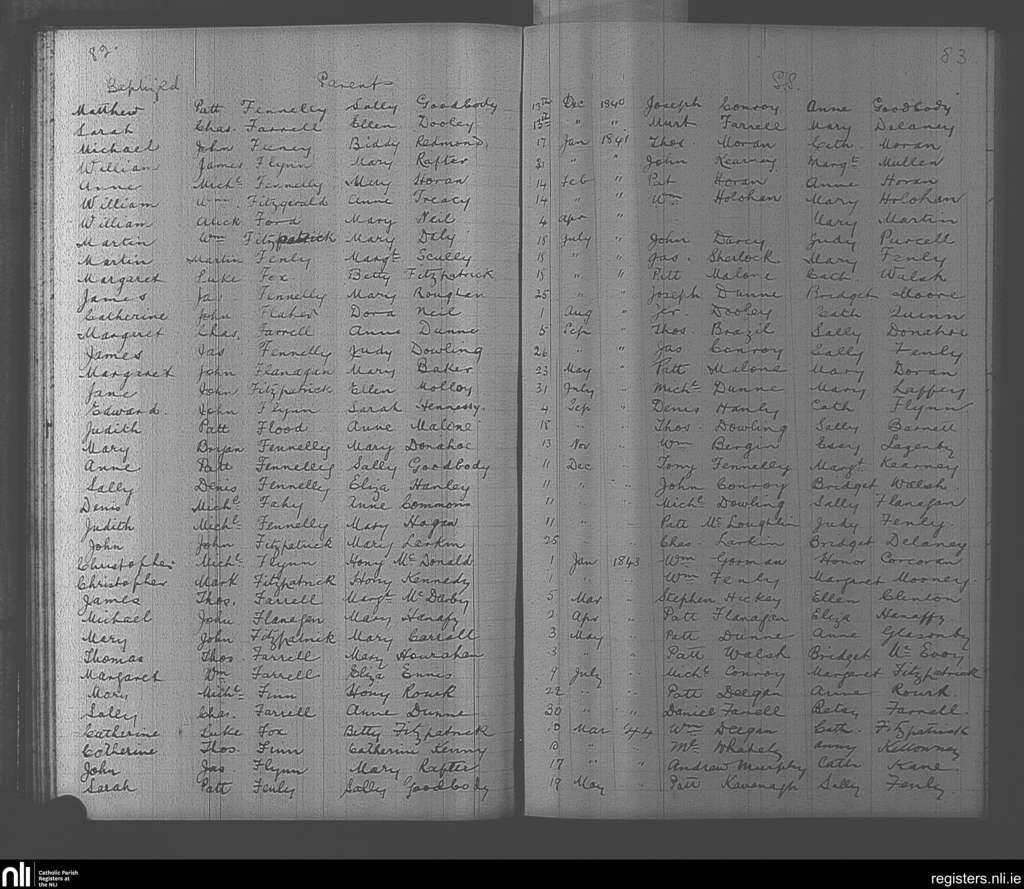 82. 83
Baptized Parent G.S.
Matthew Patt Fennelly Sally Goodbody 13th Dec 1840 Joseph Conroy Anne Goodbody
Sarah Chas. Farrell Ellen Dooley 13th " " Murt Farrell Mary Delaney
Michael John Feeney Biddy Redmond 17 Jan 1841 Thos. Moran Cath Moran
William James Flynn Mary Rafter 31 " " John Kearney Margt Mullen
Anne Michl Fennelly Mary Horan 14 Feb " Pat Horan Anne Horan
William Wm Fitzgerald Anne Treacy 14 " " Wm Holohan Mary Holohan
William Alick Ford Mary Neil 4 Apr " Mary Martin
Martin Wm Fitzpatrick Mary Daly 18 July " John Darcy Judy Purcell
Martin Martin Fenly Margt Scully 18 " " Jas. Sherlock Mary Fenly
Margaret Luke Fox Betty Fitzpatrick 18 " " Patt Malone Cath Walsh
James Jas Fennelly Mary Roughan 25 " " Joseph Dunne Bridget Moore
Catherine John Flaher Dora Neil 1 Aug " Jer. Dooley Cath Quinn
Margaret Chas. Farrell Anne Dunne 5 Sep " Thos. Brazil Sally Donahoe
James Jas Fennelly Judy Dowling 26 " " Jas Conroy Sally Fenly
Margaret John Flanagan Mary Baker 23 May " Patt Malone Mary Doran
Jane John Fitzpatrick Ellen Molloy 31 July " Michl Dunne Mary Laffery
Edward John Flynn Sarah Hennessy. 4 Sep " Denis Hanly Cath Flynn
Judith Patt Flood Anne Malone 18 " " Thos. Dowling Sally Barnell
Mary Bryan Fennelly Mary Donahoe 13 Nov " Wm Bergin Essy Lazenby
Anne Patt Fennelly Sally Goodbody 11 Dec " Tomy Fennelly Margt Kearney
Sally Denis Fennelly Eliza Hanley 11 " " John Conroy Bridget Walsh
Denis Michl Fahy Anne Commons 11 " " Michl Dowling Sally Flanagan
Judith Michl Fennelly Mary Hogan 11 " " Patt McLoughlin Judy Fenly
John John Fitzpatrick Mary Larkin 25 " " Chas. Larkin Bridget Delaney
Christopher Michl Flynn Hony McDonald 1 Jan 1843 Wm Gorman Honor Corcoran
Christopher Mark Fitzpatrick Hony Kennedy 1 " " Wm Fenly Margaret Mooney
James Thos. Farrell Margt McDarby 5 Mar " Stephen Hickey Ellen Clinton
Michael John Flanagan Mary Hanafy 2 Apr " Patt Flanagan Eliza Hanaffy
Mary John Fitzpatrick Mary Carroll 3 May " Patt Dunne Anne Glasonby
Thomas Thos. Farrell Mary Hourahan 3 " " Patt Walsh Bridget McEvoy
Margaret Wm Farrell Eliza Ennis 9 July " Michl Conroy Margaret Fitzpatrick
Mary Michl Finn Hony Rourk 22 " " Patt Deegan Anne Rourk.
Sally Chas. Farrell Anne Dunne 30 " " Daniel Farrell Betsy Farrell
Catherine Luke Fox Betty Fitzpatrick 10 Mar '44 Wm Deegan Cath. Fitzpatrick
Catherine Thos. Finn Catherine Kenny 10 " Mr. Whately
John Jas. Flynn Mary Rafter 17 " " Andrew Murphy Cath Kane
Sarah Patt Fenly Sally Goodbody 19 May Patt Kavanagh Sally Fenly
nli Catholic Parish Registers at the NLI registers.nli.ie